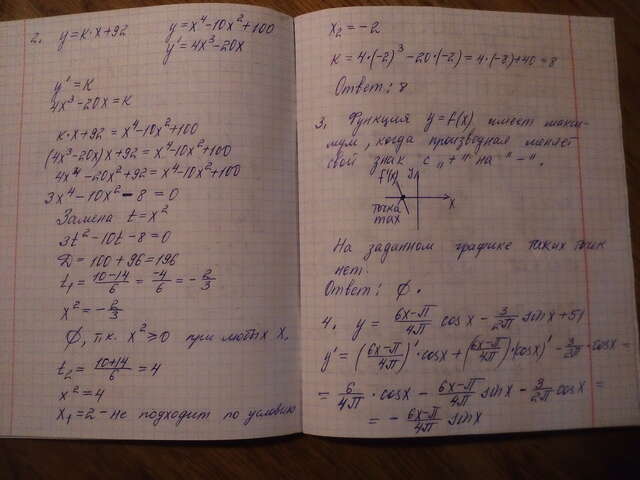 2. y = k·x+92   y = x⁴-10x²+100
y' = 4x³-20x
y' = k
4x³-20x = k
k·x+92 = x⁴-10x²+100
(4x³-20x)x+92 = x⁴-10x²+100
4x⁴-20x²+92 = x⁴-10x²+100
3x⁴-10x²-8 = 0
Замена t = x²
3t²-10t-8 = 0
D = 100+96 = 196
t₁ = (10-14)/6 = -4/6 = -2/3
x² = -2/3
∅, т.к. x² ≥ 0 при любых x,
t₂ = (10+14)/6 = 4
x² = 4
x₁ = 2 - не подходит по условию
x₂ = -2
k = 4·(-2)³ - 20·(-2) = 4·(-8)+40 = 8
Ответ: 8
3. Функция y = f(x) имеет макси-
мум, когда производная меняет
свой знак с „+" на „-".
f'(x) y
x
точка
max
На заданном графике таких точек
нет.
Ответ: ∅.
4. y = (6x-π)/4π cosx - 3/2π sinx + 51
y' = ((6x-π)/4π)'·cosx + ((6x-π)/4π)·(cosx)' - 3/2π·cosx =
= 6/4π·cosx - (6x-π)/4π sinx - 3/2π cosx =
= - (6x-π)/4π sinx